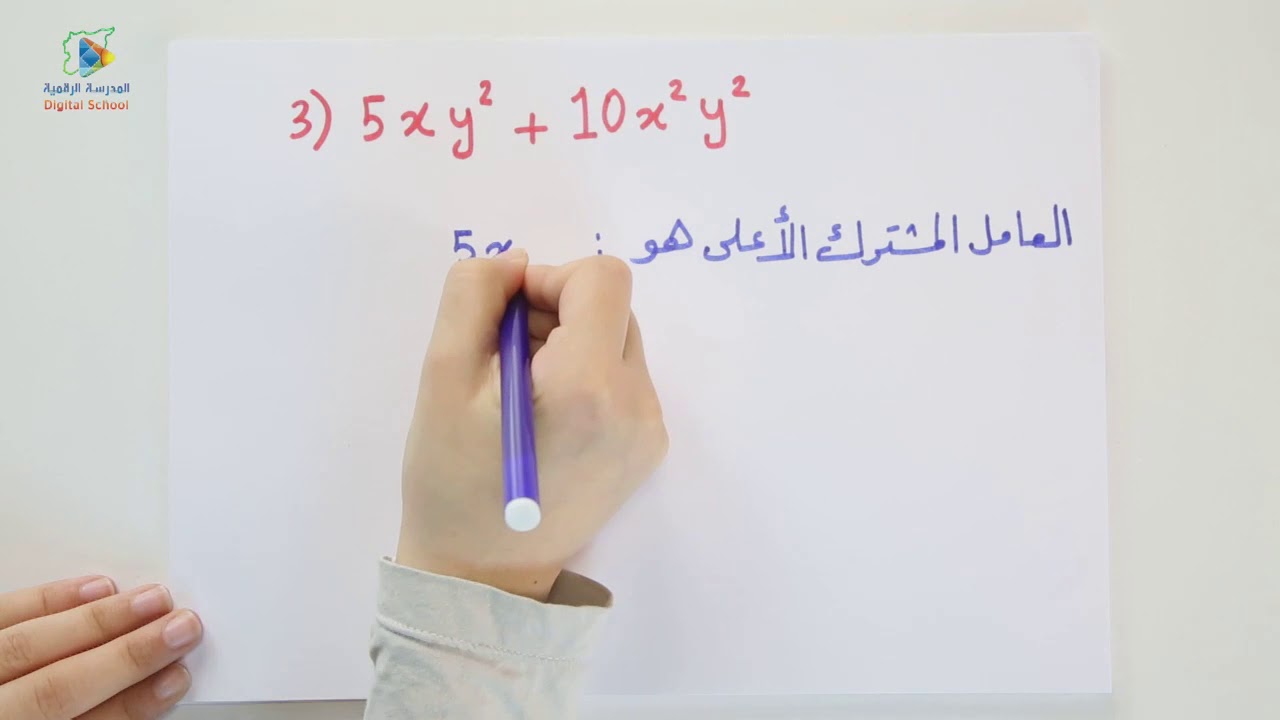 المدرسة الرقمية
Digital School
3) 5xy² + 10x²y²
العامل المشترك الأعلى هو : 5x